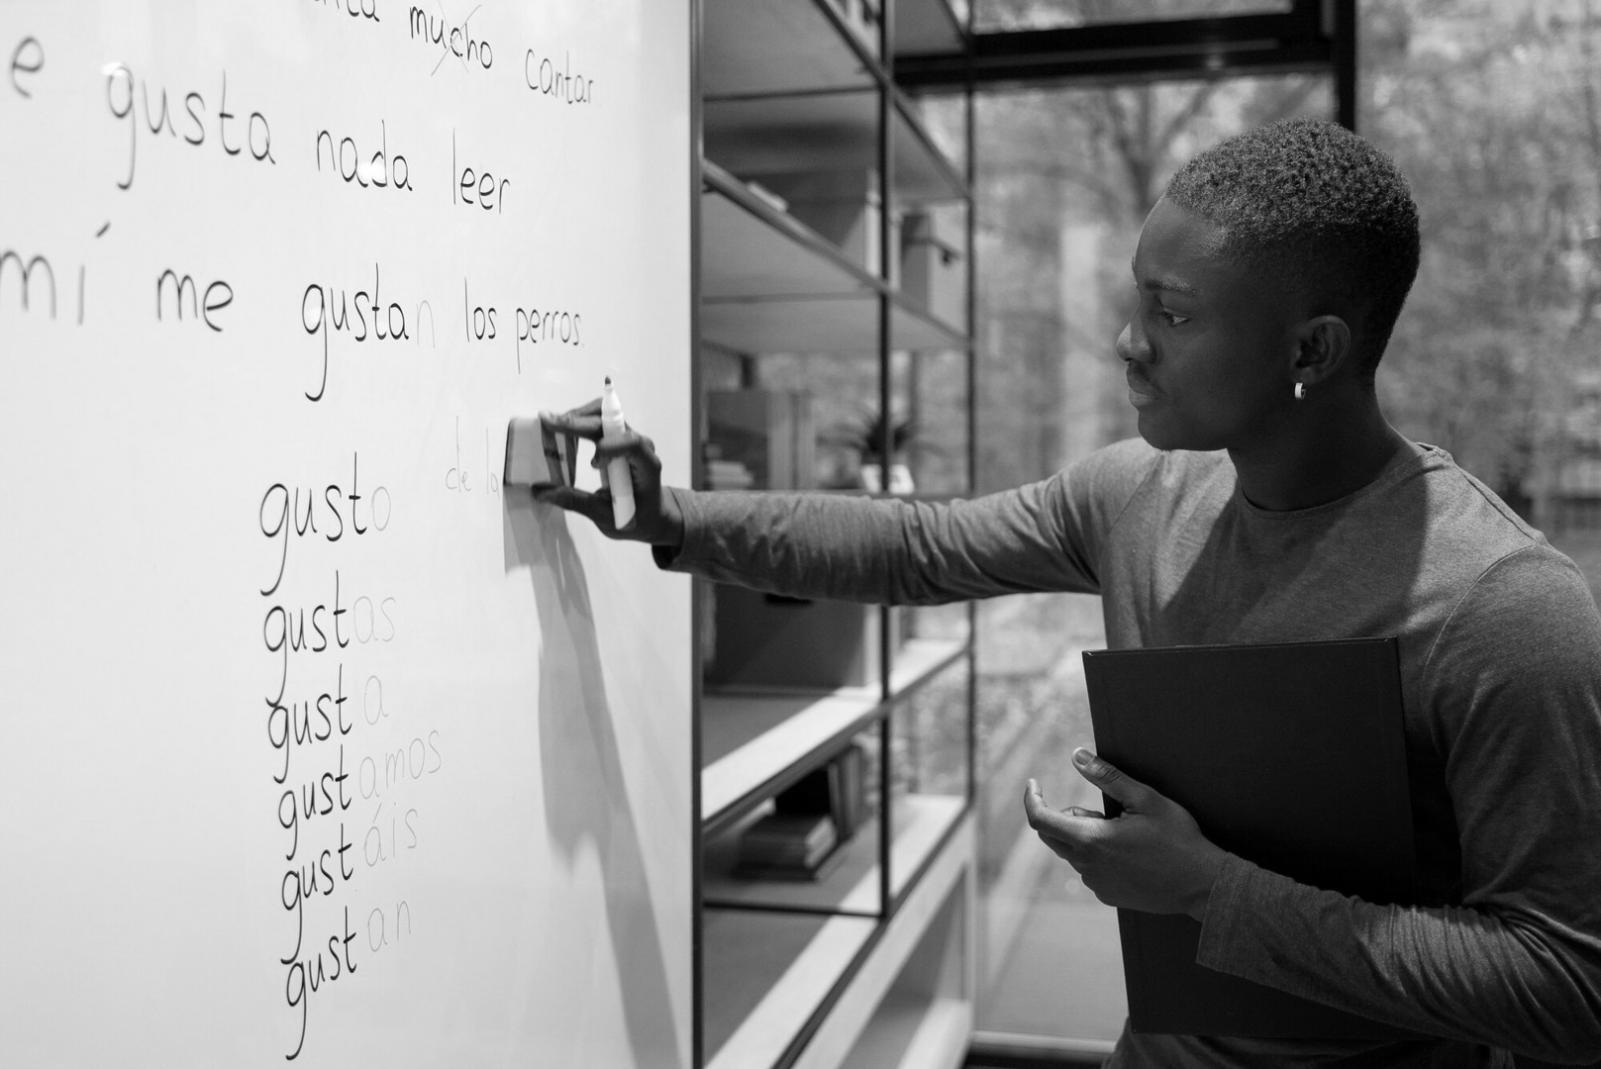 mucho cantar
e gusta nada leer
mí me gustan los perros.
de la
gusto
gustas
gusta
gustamos
gustáis
gustan